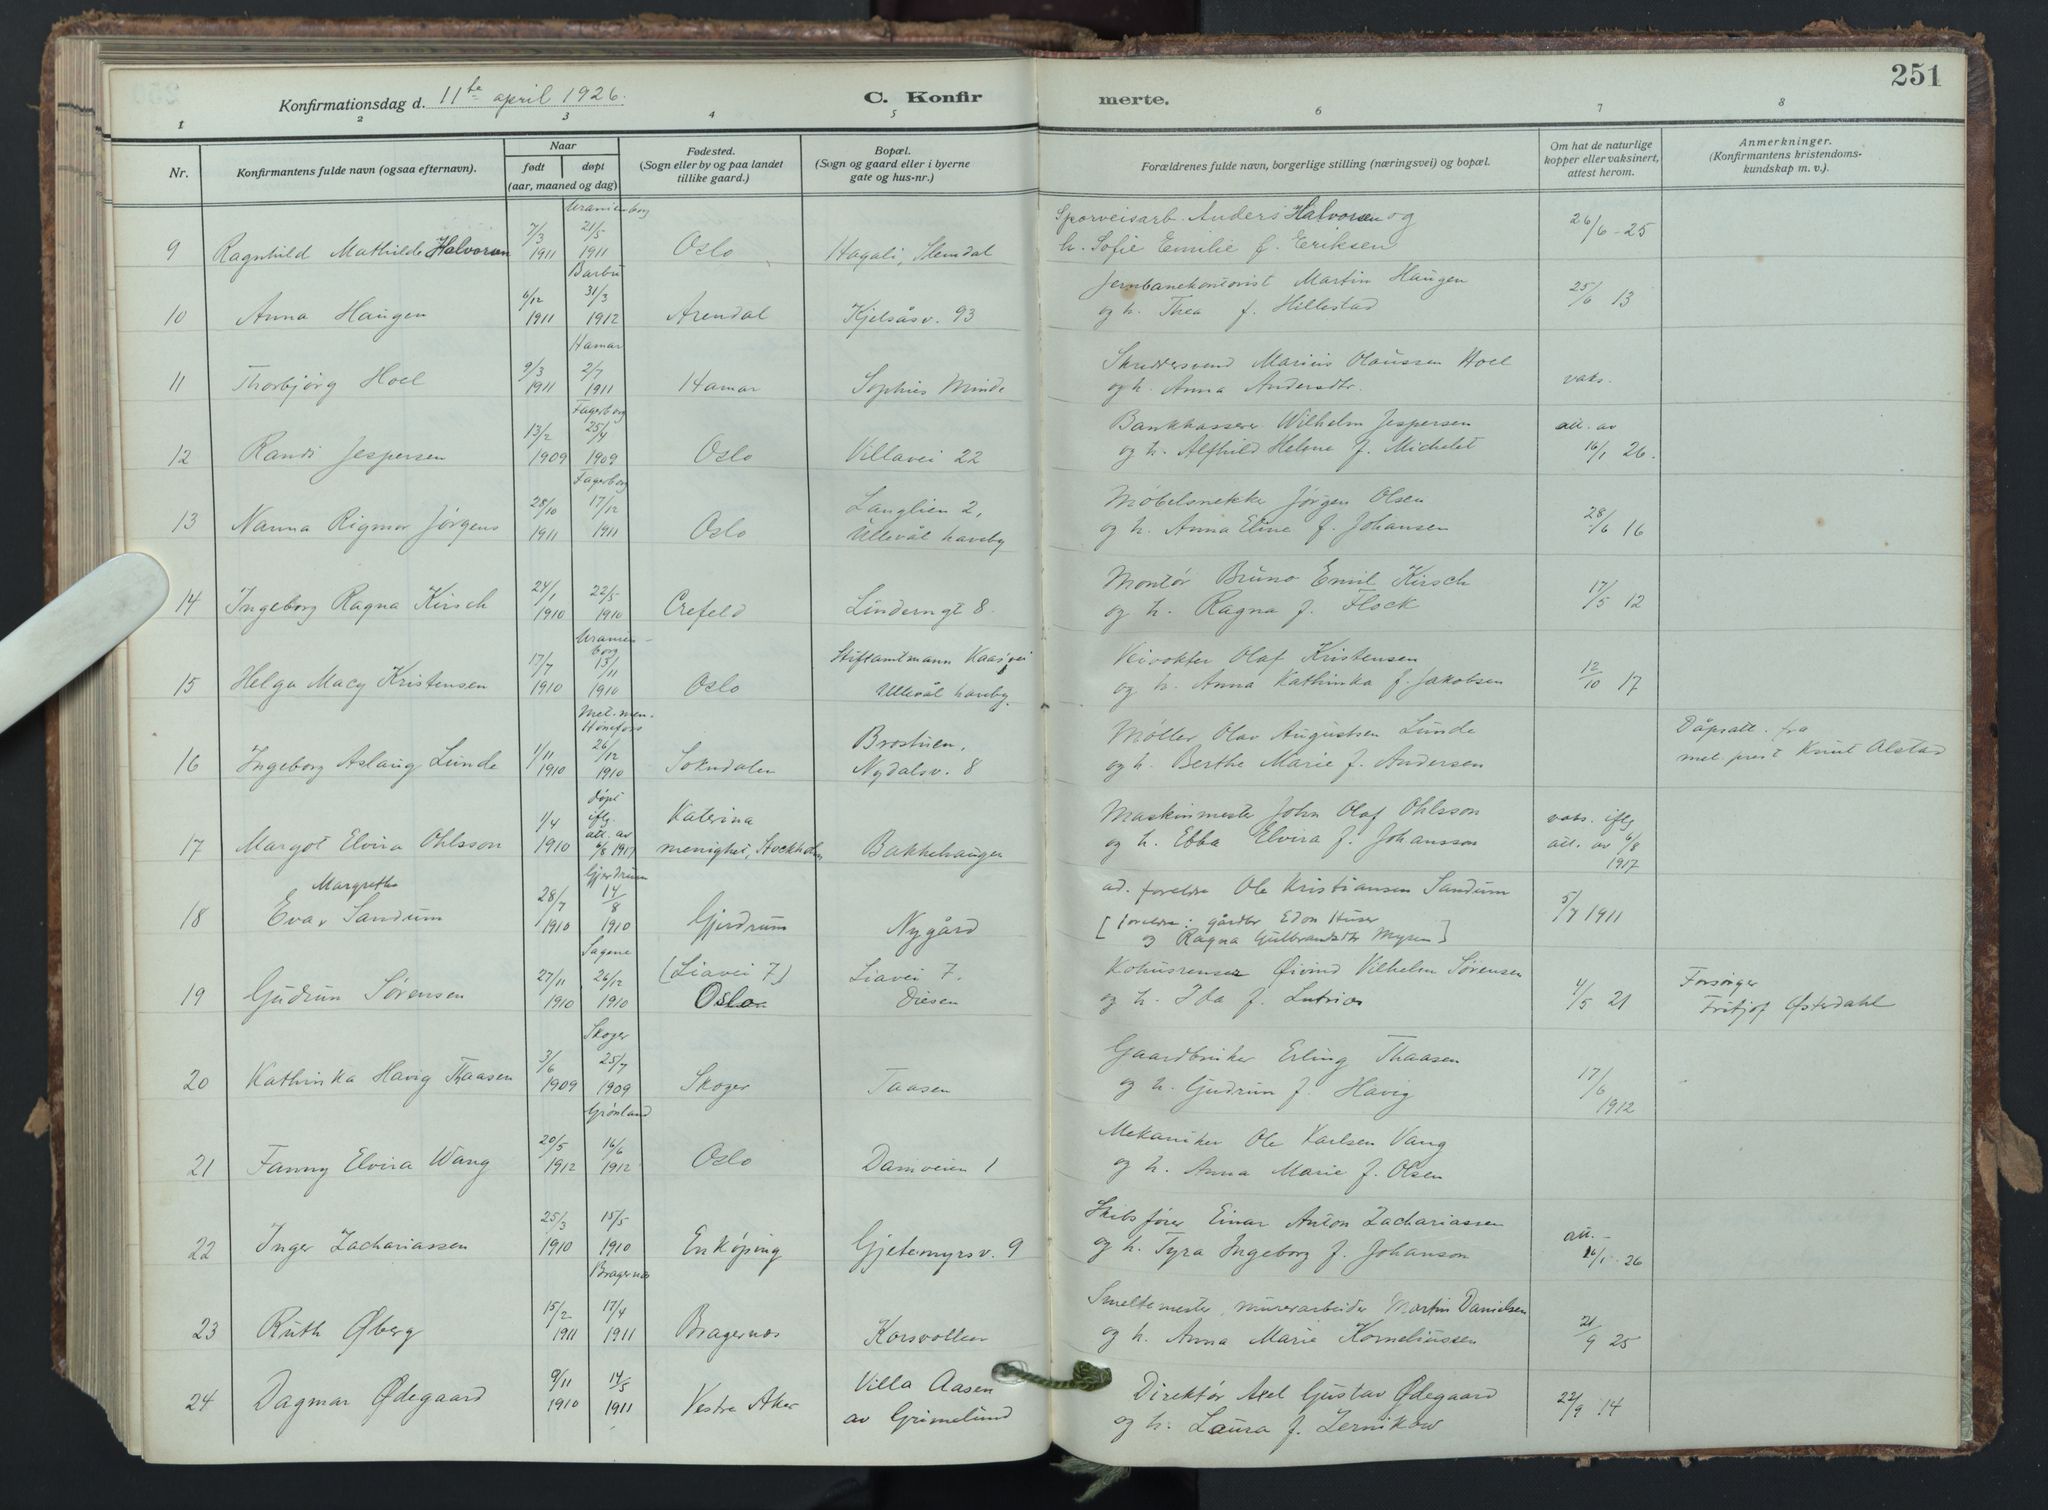 251
Konfirmationsdag d. 11te april 1926.
C. Konfir
merte.
1 2 3 4 5 6 7 8
Nr.
Konfirmantens fulde navn (ogsaa efternavn).
Naar
født
døpt
(aar, maaned og dag)
Fødested.
(Sogn eller by og paa landet
tillike gaard.)
Bopæl.
(Sogn og gaard eller i byerne
gate og hus-nr.)
Forældrenes fulde navn, borgerlige stilling (næringsvei) og bopæl.
Om hat de naturlige
kopper eller vaksinert,
attest herom.
Anmerkninger.
(Konfirmantens kristendoms-
kundskap m. v.).
Uranienborg
9 Ragnhild Mathilde Halvorsen 7/3 1911 21/5 1911 Oslo Hagali, Slemdal
Sporveisarb. Anders Halvorsen og
h. Sofie Emilie f. Eriksen
26/6 - 25
Barbu
10 Anna Haugen 6/12 1911 31/3 1912 Arendal Kjelsåsv. 93
Jernbanekontorist Martin Haugen
og h. Thea f. Hillestad
25/6 13
Hamar
11 Thorbjørg Hoel 9/3 1911 2/7 1911 Hamar Sophies Minde
Skreddersvend Marius Olaussen Hoel
og h. Anna Andersdtr.
vaks.
Fagerborg
12 Randi Jespersen 13/2 1909 25/4 1909 Oslo Villavei 22
Bankkasserer Wilhelm Jespersen
og h. Alfhild Helene f. Michelet
att. av
16/1 26.
Fagerborg
13 Nanna Rigmor Jørgens 28/10 1911 17/12 1911 Oslo Langlien 2,
Ullevål haveby
Møbelsnekker Jørgen Olsen
og h. Anna Eline f. Johansen
28/6 16
14 Ingeborg Ragna Kirsch 24/1 1910 22/5 1910 Crefeld Linderngt 8.
Montør Bruno Emil Kirsch
og h. Ragna f. Flock
17/5 12
Uranien-
borg
15 Helga Macy Kristensen 17/7 1910 13/11 1910 Oslo Stiftamtmann Kaasvei
Ullevål haveby.
Veivokter Olaf Kristensen
og h. Anna Kathinka f. Jakobsen
12/10 17
Met. men.
Hønefoss
16 Ingeborg Aslaug Lunde 1/11 1910 26/12 1910 Sokndalen Brostuen,
Nydalsv. 8
Møller Olav Augustsen Lunde
og h. Berthe Marie f. Andersen
Dåpsatt. fra
met. prest Knut Alstad
17 Margot Elvira Ohlsson 1/4 1910 døpt
iflg.
att. av
6/8 1917
Katerina
menighet, Stockholm Bakkehaugen
Maskinmester John Olaf Ohlsson
og h. Ebba Elvira f. Johansson
vaks. iflg
att. av 6/8
1917
Gjerdrum
Margrethe
18 Eva Sandum 28/7 1910 14/8 1910 Gjerdrum Nygård
ad. foreldre Ole Kristiansen Sandum
[foreldre: gårdbr Edon Huser
og Ragna Gulbrandsdtr Myren]
5/7 1911
Sagene
19 Gudrun Sørensen 27/11 1910 26/12 1910 (Liavei 7)
Oslo
Liavei 7.
Disen
Øivind Vilhelm Sørensen
og h. Ida f.
4/5 21
Forsørger
Fritjof Østerdahl
Skoger
20 Kathinka Havig Thaasen 3/6 1909 25/7 1909 Skoger Taasen
Gaardbruker Erling Thaasen
og h. Gudrun f. Havig
17/6
1912
Grønland
21 Fanny Elvira Wang 20/5 1912 16/6 1912 Oslo Damveien 1
Mekaniker Ole Karlsen Vang
og h. Anna Marie f. Olsen
22 Inger Zachariassen 25/3 1910 15/5 1910 Enköping Gjetemyrsv. 9
Skibsfører Einar Anton Zachariassen
og h. Tyra Ingeborg f. Johanson
att. -
16/1 - 26
Bragernæs
23 Ruth Øberg 15/2 1911 17/4 1911 Bragernæs Korsvollen
Smeltemester, murerarbeider Martin Danielsen
og h. Anna Marie Korneliussen
21/9 25
24 Dagmar Ødegaard 9/11 1910 14/5 1911 Vestre Aker Villa Aasen
av Grimelund
Direktør Axel Gustav Ødegaard
og h. Laura f. Zernikow
22/9 14